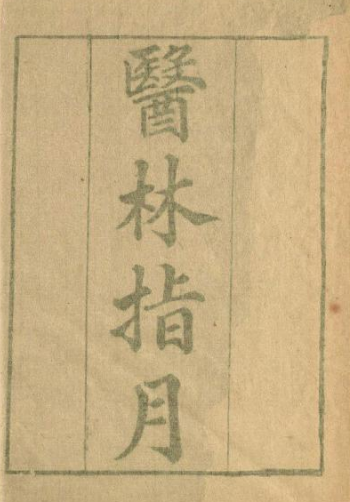 醫林指月